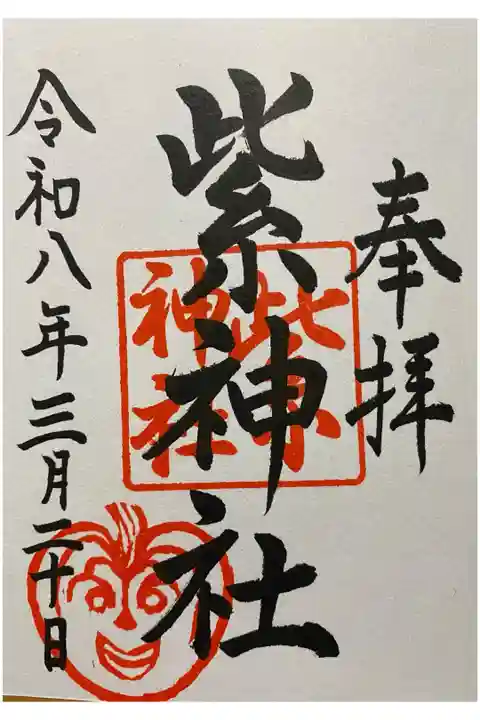 奉拝
紫神社
紫神社
令和八年三月二十日